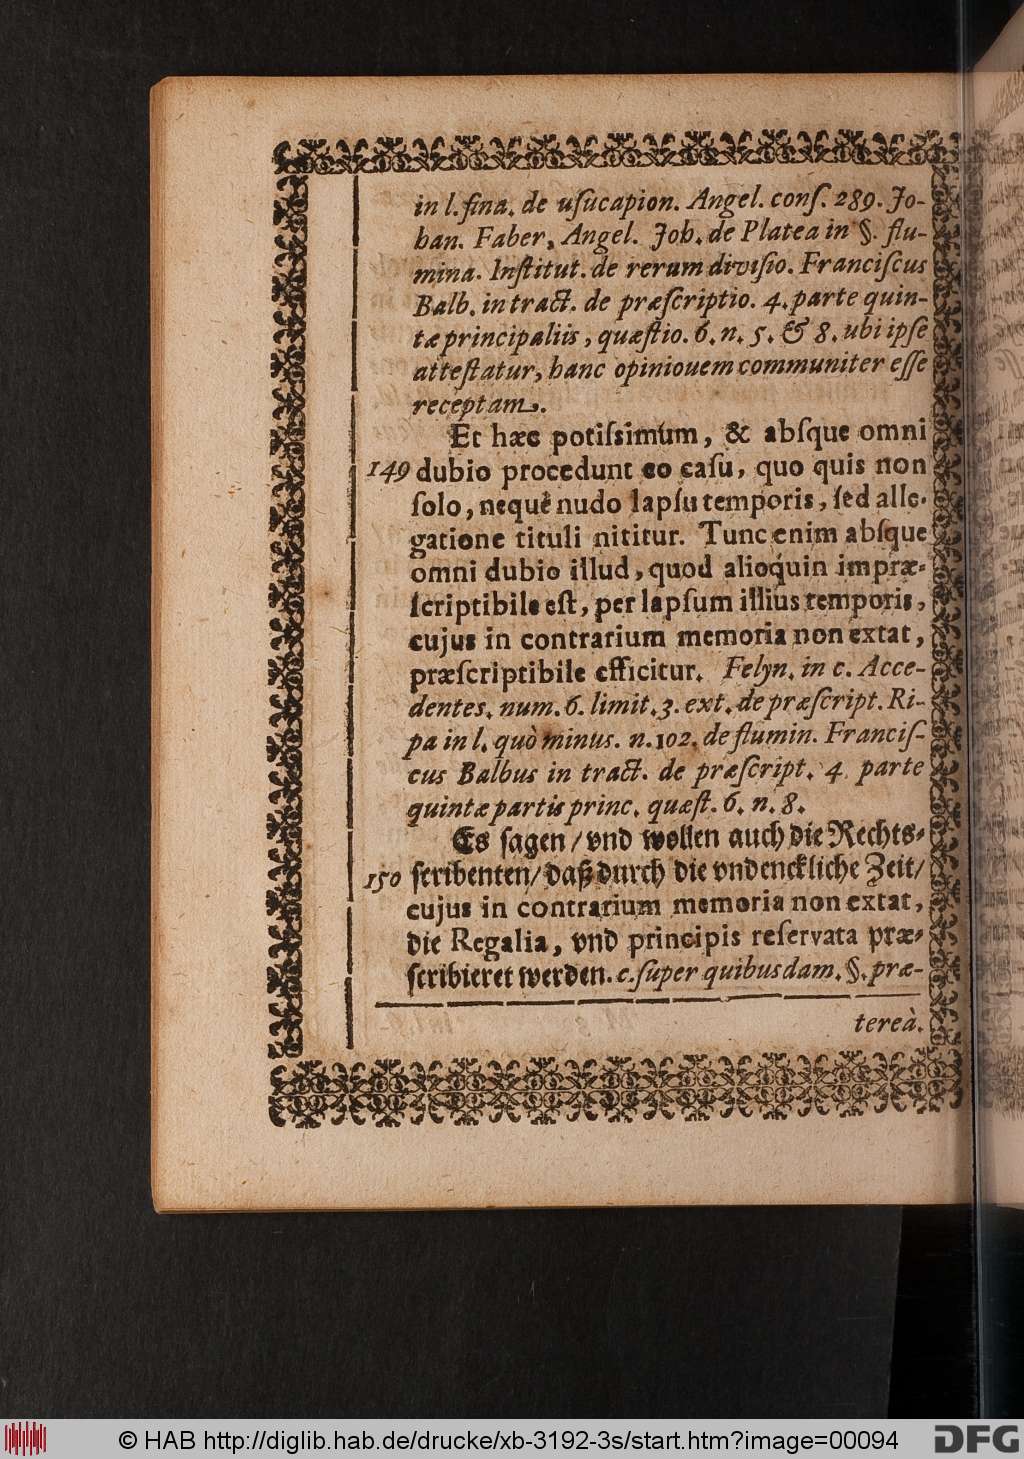 in l. fina. de uſucapion. Angel. conſ. 289. Jo-
han. Faber, Angel. Joh. de Platea in §. flu-
mina. Inſtitut. de rerum diviſio. Franciſcus
Balb. in tract. de præſcriptio. 4. parte quin-
tæ principaliis, quæſtio. 6. n. 5. & 8. ubi ipſe
atteſtatur, hanc opiniouem communiter eſſe
receptam.
Et hæc potiſsimùm, & abſque omni
149 dubio procedunt eo caſu, quo quis non
ſolo, nequè nudo lapſu temporis, ſed alle-
gatione tituli nititur. Tunc enim abſque
omni dubio illud, quod alioquin impræ-
ſcriptibile eſt, per lapſum illius temporis,
cujus in contrarium memoria non extat,
præſcriptibile efficitur. Felyn. in c. Acce-
dentes. num. 6. limit. 3. ext. de præſcript. Ri-
pa in l. quò minus. n. 102. de flumin. Franciſ-
cus Balbus in tract. de præſcript. 4 parte
quintæ partis princ. quæſt. 6. n. 8.
Es ſagen / vnd wollen auch die Rechts-
150 ſcribenten / daß durch die vndenckliche Zeit /
cujus in contrarium memoria non extat,
die Regalia, vnd principis reſervata præ-
ſcribieret werden. c. ſuper quibusdam. §. præ-
tereà.
© HAB http://diglib.hab.de/drucke/xb-3192-3s/start.htm?image=00094
DFG